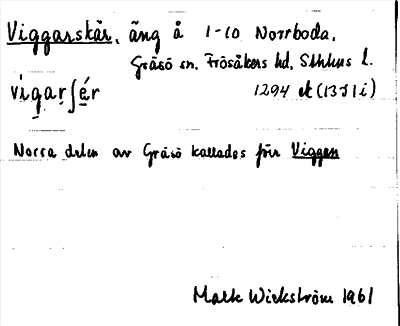 Viggarskär, äng å 1-10 Norrboda,
Gräsö sn, Frösåkers hd, Sthlms l.
vigarʃér 1294 et (1351i)
Norra delen av Gräsö kallades förr Viggen
Wickström 1961